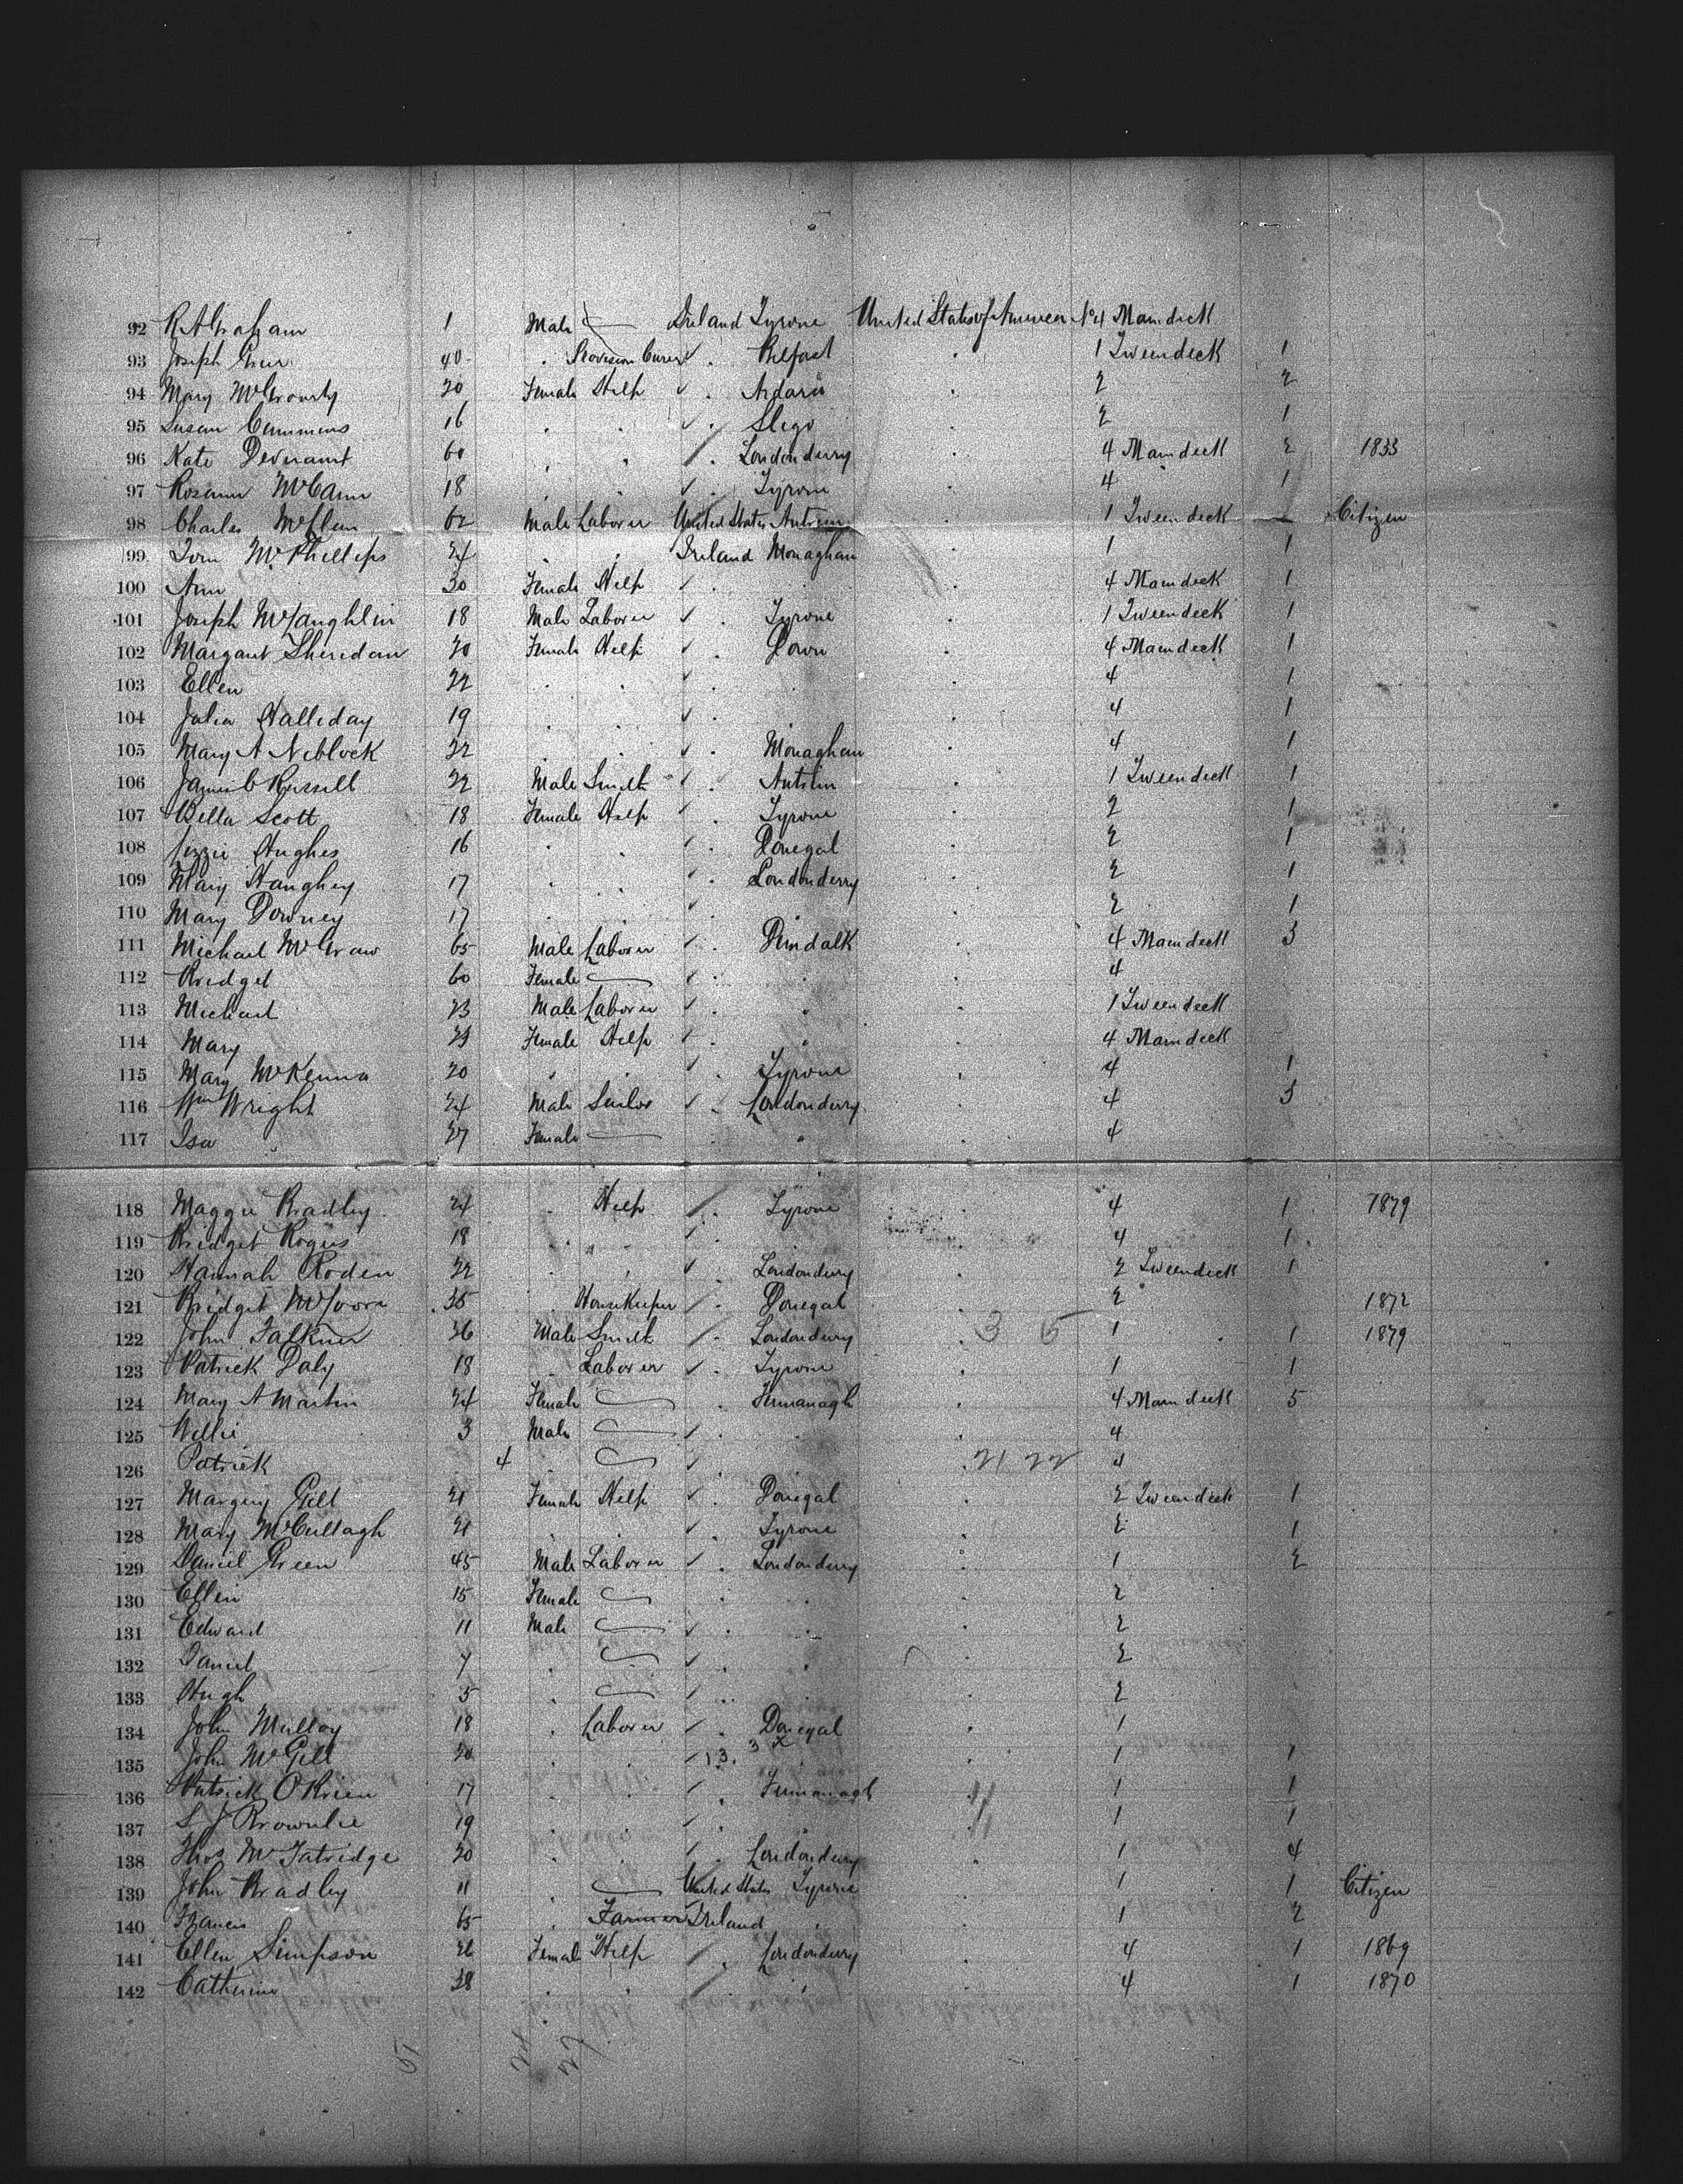 92 R A Graham 1 Male Ireland Tyrone United States of America No 4 Maindeck
93 Joseph 40 " Provision Curer " Belfast " 1 Tweendeck 1
94 Mary McGrourty 20 Female Help " Ardara " 2 2
95 Susan Cummins 16 " " " Sligo " 2 1
96 Kate Devenant 60 " " " Londonderry " 4 Maindeck 2 1833
97 Rosann McCann 18 " " " Tyrone " 4 " 1
98 Charles 62 Male Laborer United States Antrim " 1 Tweendeck Citizen
99 Tom McPhillips 24 " " Ireland Monaghan " 1 1
100 Ann 30 Female Help " " " 4 Maindeck 1
101 Joseph McLaughlin 18 Male Laborer " Tyrone " 1 Tweendeck 1
102 Margaret Sheridan 20 Female Help " Down " 4 Maindeck 1
103 Ellen 22 " " " " " 4 1
104 Julia Halliday 19 " " " " " 4 1
105 Mary A Niblock 22 " " " Monaghan " 4 1
106 James C Russell 22 Male Smith " Antrim " 1 Tweendeck 1
107 Bella Scott 18 Female Help " Tyrone " 2 1
108 Lizzie Hughes 16 " " " Donegal " 2 1
109 Mary Haughey 17 " " " Londonderry " 2 1
110 Mary Downey 17 " " " " " 2 1
111 Michael McGraw 65 Male Laborer " Dundalk " 4 Maindeck 3
112 Bridget 60 Female " " " 4
113 Michael 23 Male Laborer " " " 1 Tweendeck
114 Mary Female Help " " " 4 Maindeck
115 Mary McKenna 20 " " " Tyrone " 4 1
116 Wm Wright 24 Male Sailor " Londonderry " 4 3
117 Isa 27 Female " " " 4
118 Maggie Bradley 24 " Help " Tyrone " 4 1 1879
119 Bridget Rogers 18 " " " " " 4 1
120 Hannah Roden 22 " " " Londonderry " 2 Tweendeck 1
121 Bridget 35 " Housekeeper " Donegal " 2 1872
122 John Falkner 26 Male Smith " Londonderry " 3 5 1 1 1879
123 Patrick Daly 18 " Laborer " Tyrone " 1 1
124 Mary A Martin 24 Female " Fermanagh " 4 Maindeck 5
125 Willie 3 Male " " " 4
126 Patrick 4 " " " " 21 22 4
127 Margery Gill 21 Female Help " Donegal " 2 Tweendeck 1
128 Mary McCullagh 21 " " " Tyrone " 2 1
129 Daniel Green 45 Male Laborer " Londonderry " 1 2
130 Ellen 15 Female " " " 2
131 Edward 11 Male " " " 2
132 Daniel 7 " " " " 2
133 Hugh 5 " " " " 2
134 John Mulloy 18 " Laborer " Donegal " 1
135 John McGill 20 " " 13. 3 " " 1 1
136 Patrick O'Brien 17 " " " Fermanagh " 11 1 1
137 S J Brownlee 19 " " " " " 1 1
138 Thos McTatridge 20 " " " Londonderry " 1 4
139 John Bradley 11 " United States Tyrone " 1 1 Citizen
140 Francis 65 " Farmer Ireland " " 1 2
141 Ellen Simpson 26 Female Help " Londonderry " 4 1 1869
142 Catherine 28 " " " " " 4 1 1870
51 24 27